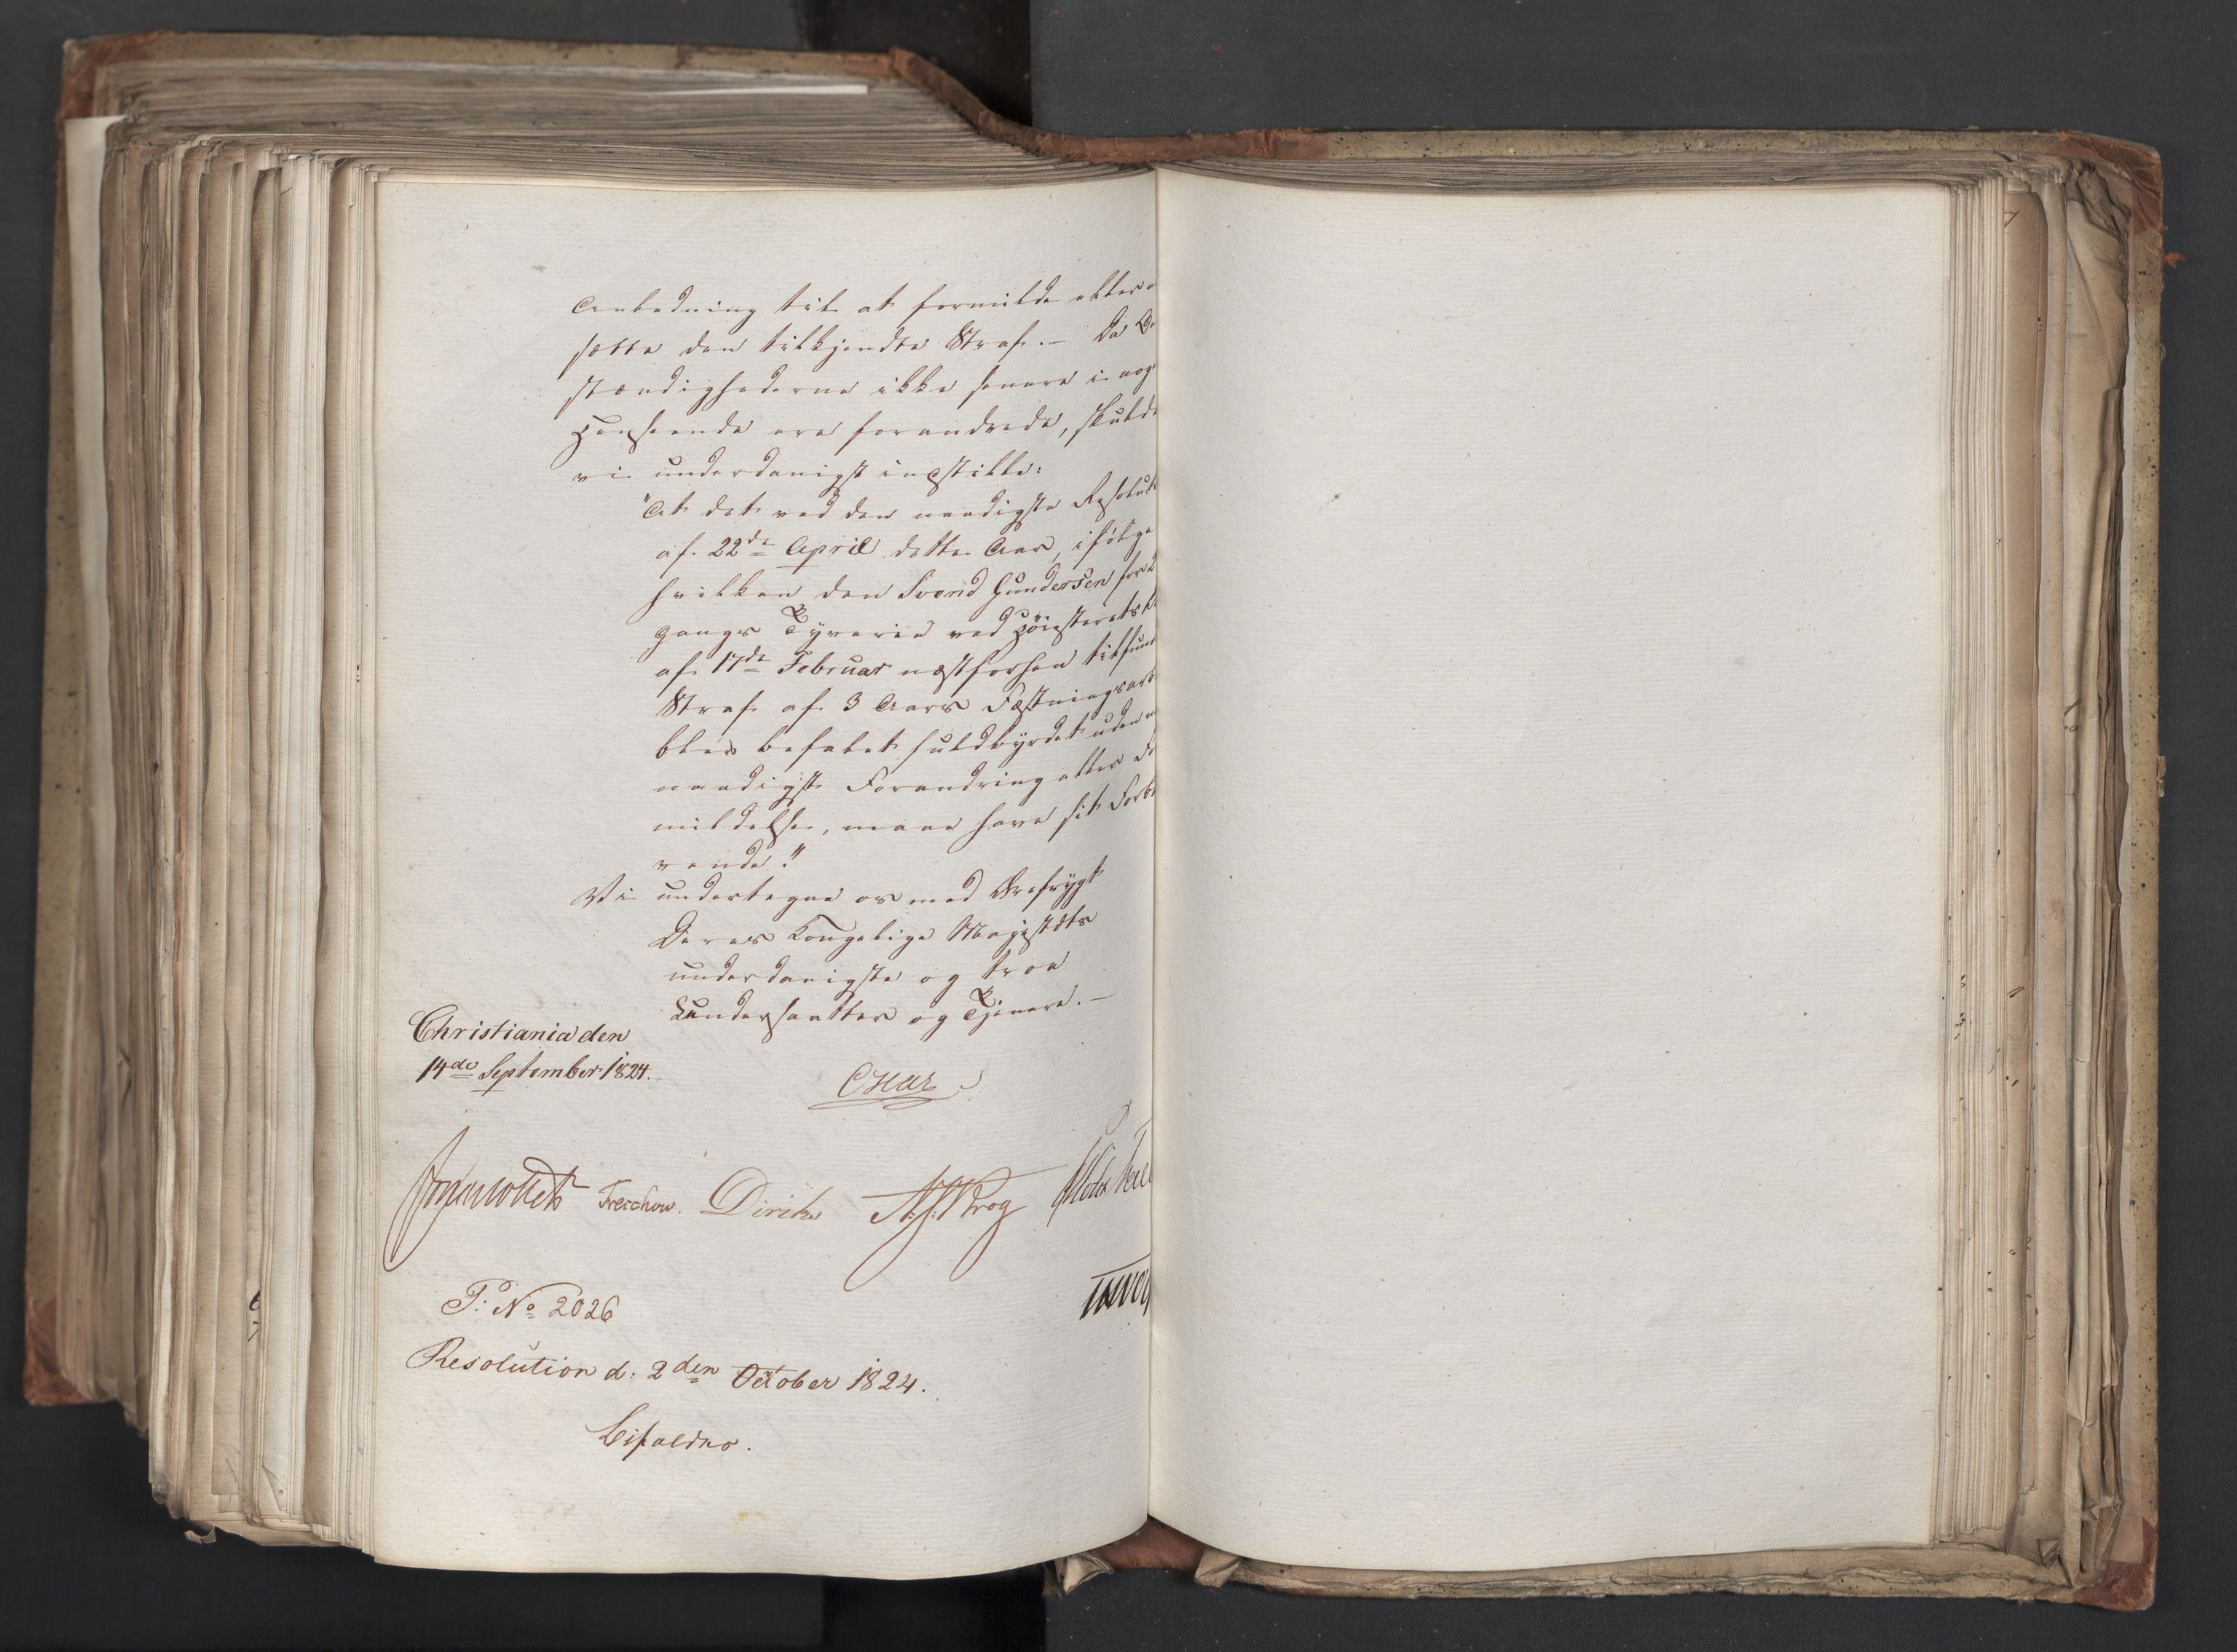 Anledning til at formilde eller
sætte den tilkjendte Straf. – Da
stændighederne ikke senere i nog
Henseende ere forandrede, skulde
vi underdanigst indstille:
"At det ved den naadigste Resolut
af 22de April dette Aar, ifølge
hvilken den Svend Gundersen for
Gangs Tyverie ved Høiesterets
af 17de Februar næstforhen tilfund
Straf af 3 Aars Fæstningsarb
blev befalet fuldbyrdet uden
naadigst Forandring eller
mildelse, maae have sit Forb
vende."
Vi undertegne os med Ærefrygt
Deres Kongelige Majestæts
underdanigste og troe
Undersaatter og Tjenere. –
Christiania den
14de September 1824.
Oscar
Treschow. Diriks
P: No 2026
Resolution d: 2den October 1824.
Bifaldes.